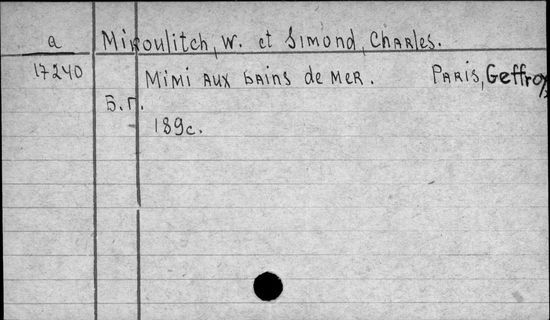 a Mikoulitch, W. et Simond, Charles.
17240 Mimi aux bains de mer. Paris, Geffroy,
Б.г.
189с.